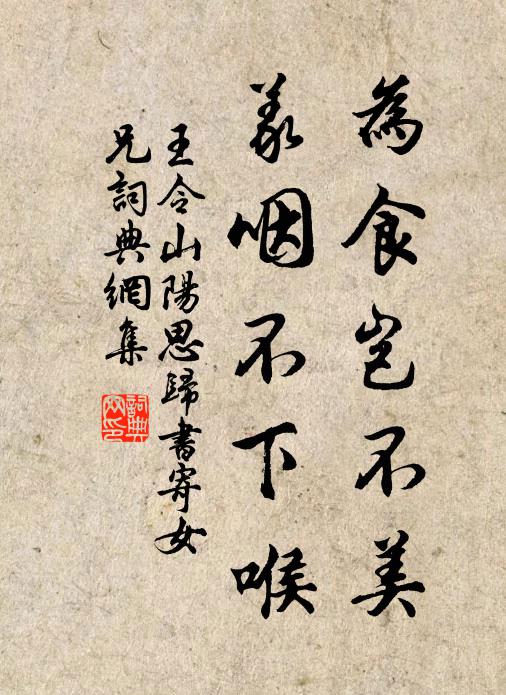 為食岂不美
義咽不下喉
王令山陽思歸書寄女
兄詞典網集
詞典
网印